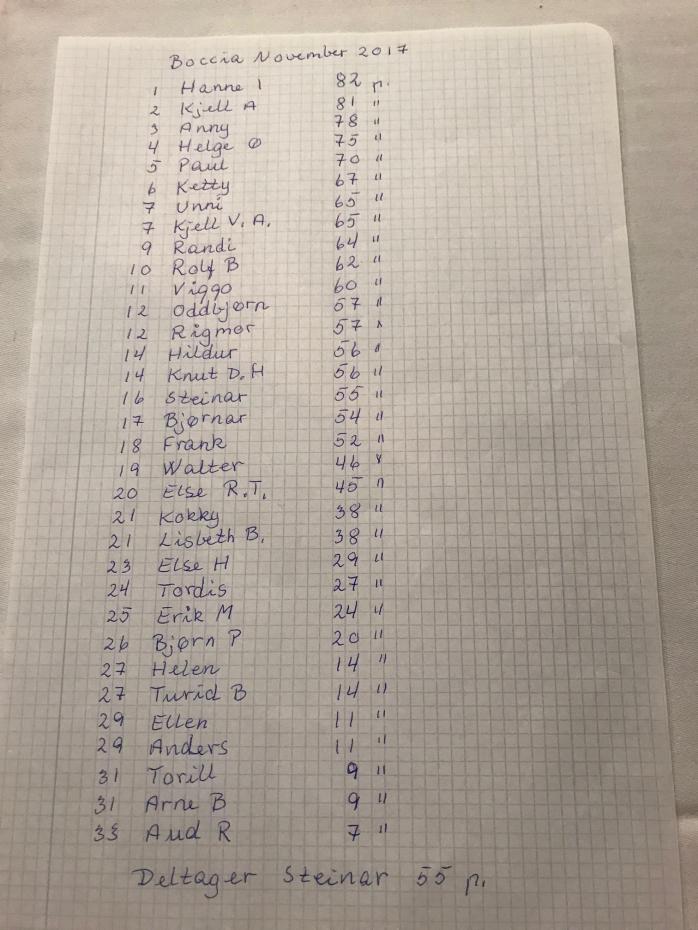 Boccia November 2017
1 Hanne I 82 p.
2 Kjell A 81 "
3 Anny 78 "
4 Helge Ø 75 "
5 Paul 70 "
6 Ketty 67 "
7 Unni 65 "
7 Kjell V. A. 65 "
9 Randi 64 "
10 Rolf B 62 "
11 Viggo 60 "
12 Oddbjørn 57 "
12 Rigmor 57 "
14 Hildur 56 "
14 Knut D. H 56 "
16 Steinar 55 "
17 Bjørnar 54 "
18 Frank 52 "
19 Walter 46 "
20 Else R.T. 45 "
21 Kokky 38 "
21 Lisbeth B. 38 "
23 Else H 29 "
24 Tordis 27 "
25 Erik M 24 "
26 Bjørn P 20 "
27 Helen 14 "
27 Turid B 14 "
29 Ellen 11 "
29 Anders 11 "
31 Torill 9 "
31 Arne B 9 "
33 Aud R 7 "
Deltager Steinar 55 p.